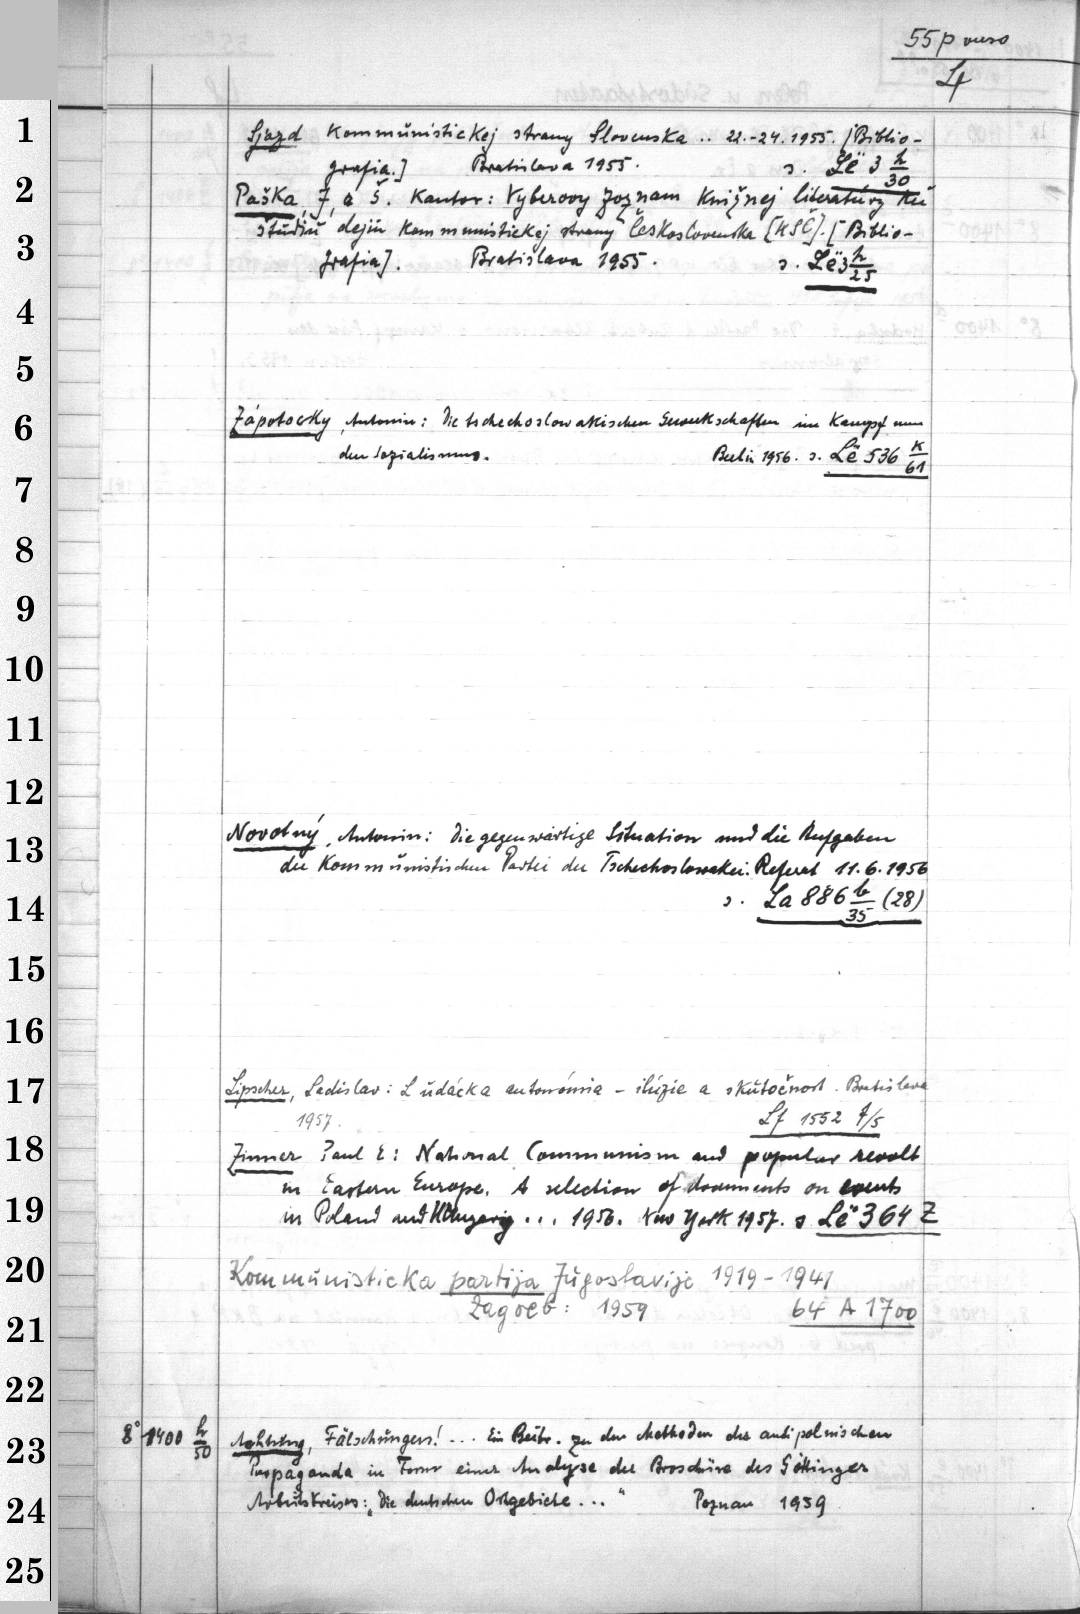 55p verso
L4
1
Sjazd Kommunistickej strany Slovenska .. 22.-24. 1955. [Biblio-
grafia.] Bratislava 1955. s. Lë 3 h/30
2
Paška, J. a Š. Kantor: Vyberovy zoznam knižnej literatúry ku
3
študiu dejín kommunistickej strany Československa [KSČ]. [Biblio-
grafia]. Bratislava 1955. s. Lë 3 h/25
4
5
6
Zápotocky, Antonin: Die tschechoslowakischen Gewerkschaften im Kampf um
den Sozialismus. Berlin 1956. s. Lë 536 k/61
7
8
9
10
11
12
13
Novotný, Antonin: Die gegenwärtige Situation und die Aufgaben
der Kommunistischen Partei der Tschechoslowakei. Referat 11.6.1956
14
s. La 886 b/35 (28)
15
16
17
Lipscher, Ladislav: Ludácka autonómia - ilúzie a skutočnost. Bratislava
1957. Lf 1552 f/5
18
Zinner Paul E: National Communism and popular revolt
in Eastern Europe. A selection of documents on events
19
in Poland and Hungary ... 1956. New York 1957. s Lë 364 Z
20
Kommunisticka partija Jugoslavije 1919-1941
21
Zagreb: 1959 64 A 1700
22
23
8° 1400 h/50 Achtung, Fälschungen! ... Ein Beitr. zu den Methoden der antipolnischen
Propaganda in Form einer Analyse der Broschüre des Göttinger
24
Arbeitskreises: "Die deutschen Ostgebiete ..." Poznan 1959
25